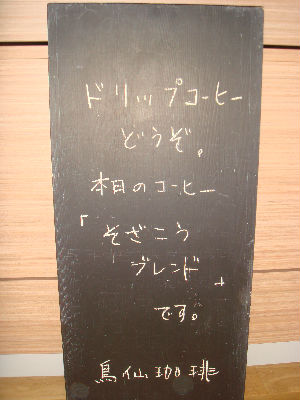 ドリップコーヒー
どうぞ。
本日のコーヒー
「そざこう
ブレンド」
です。
鳥仙珈琲